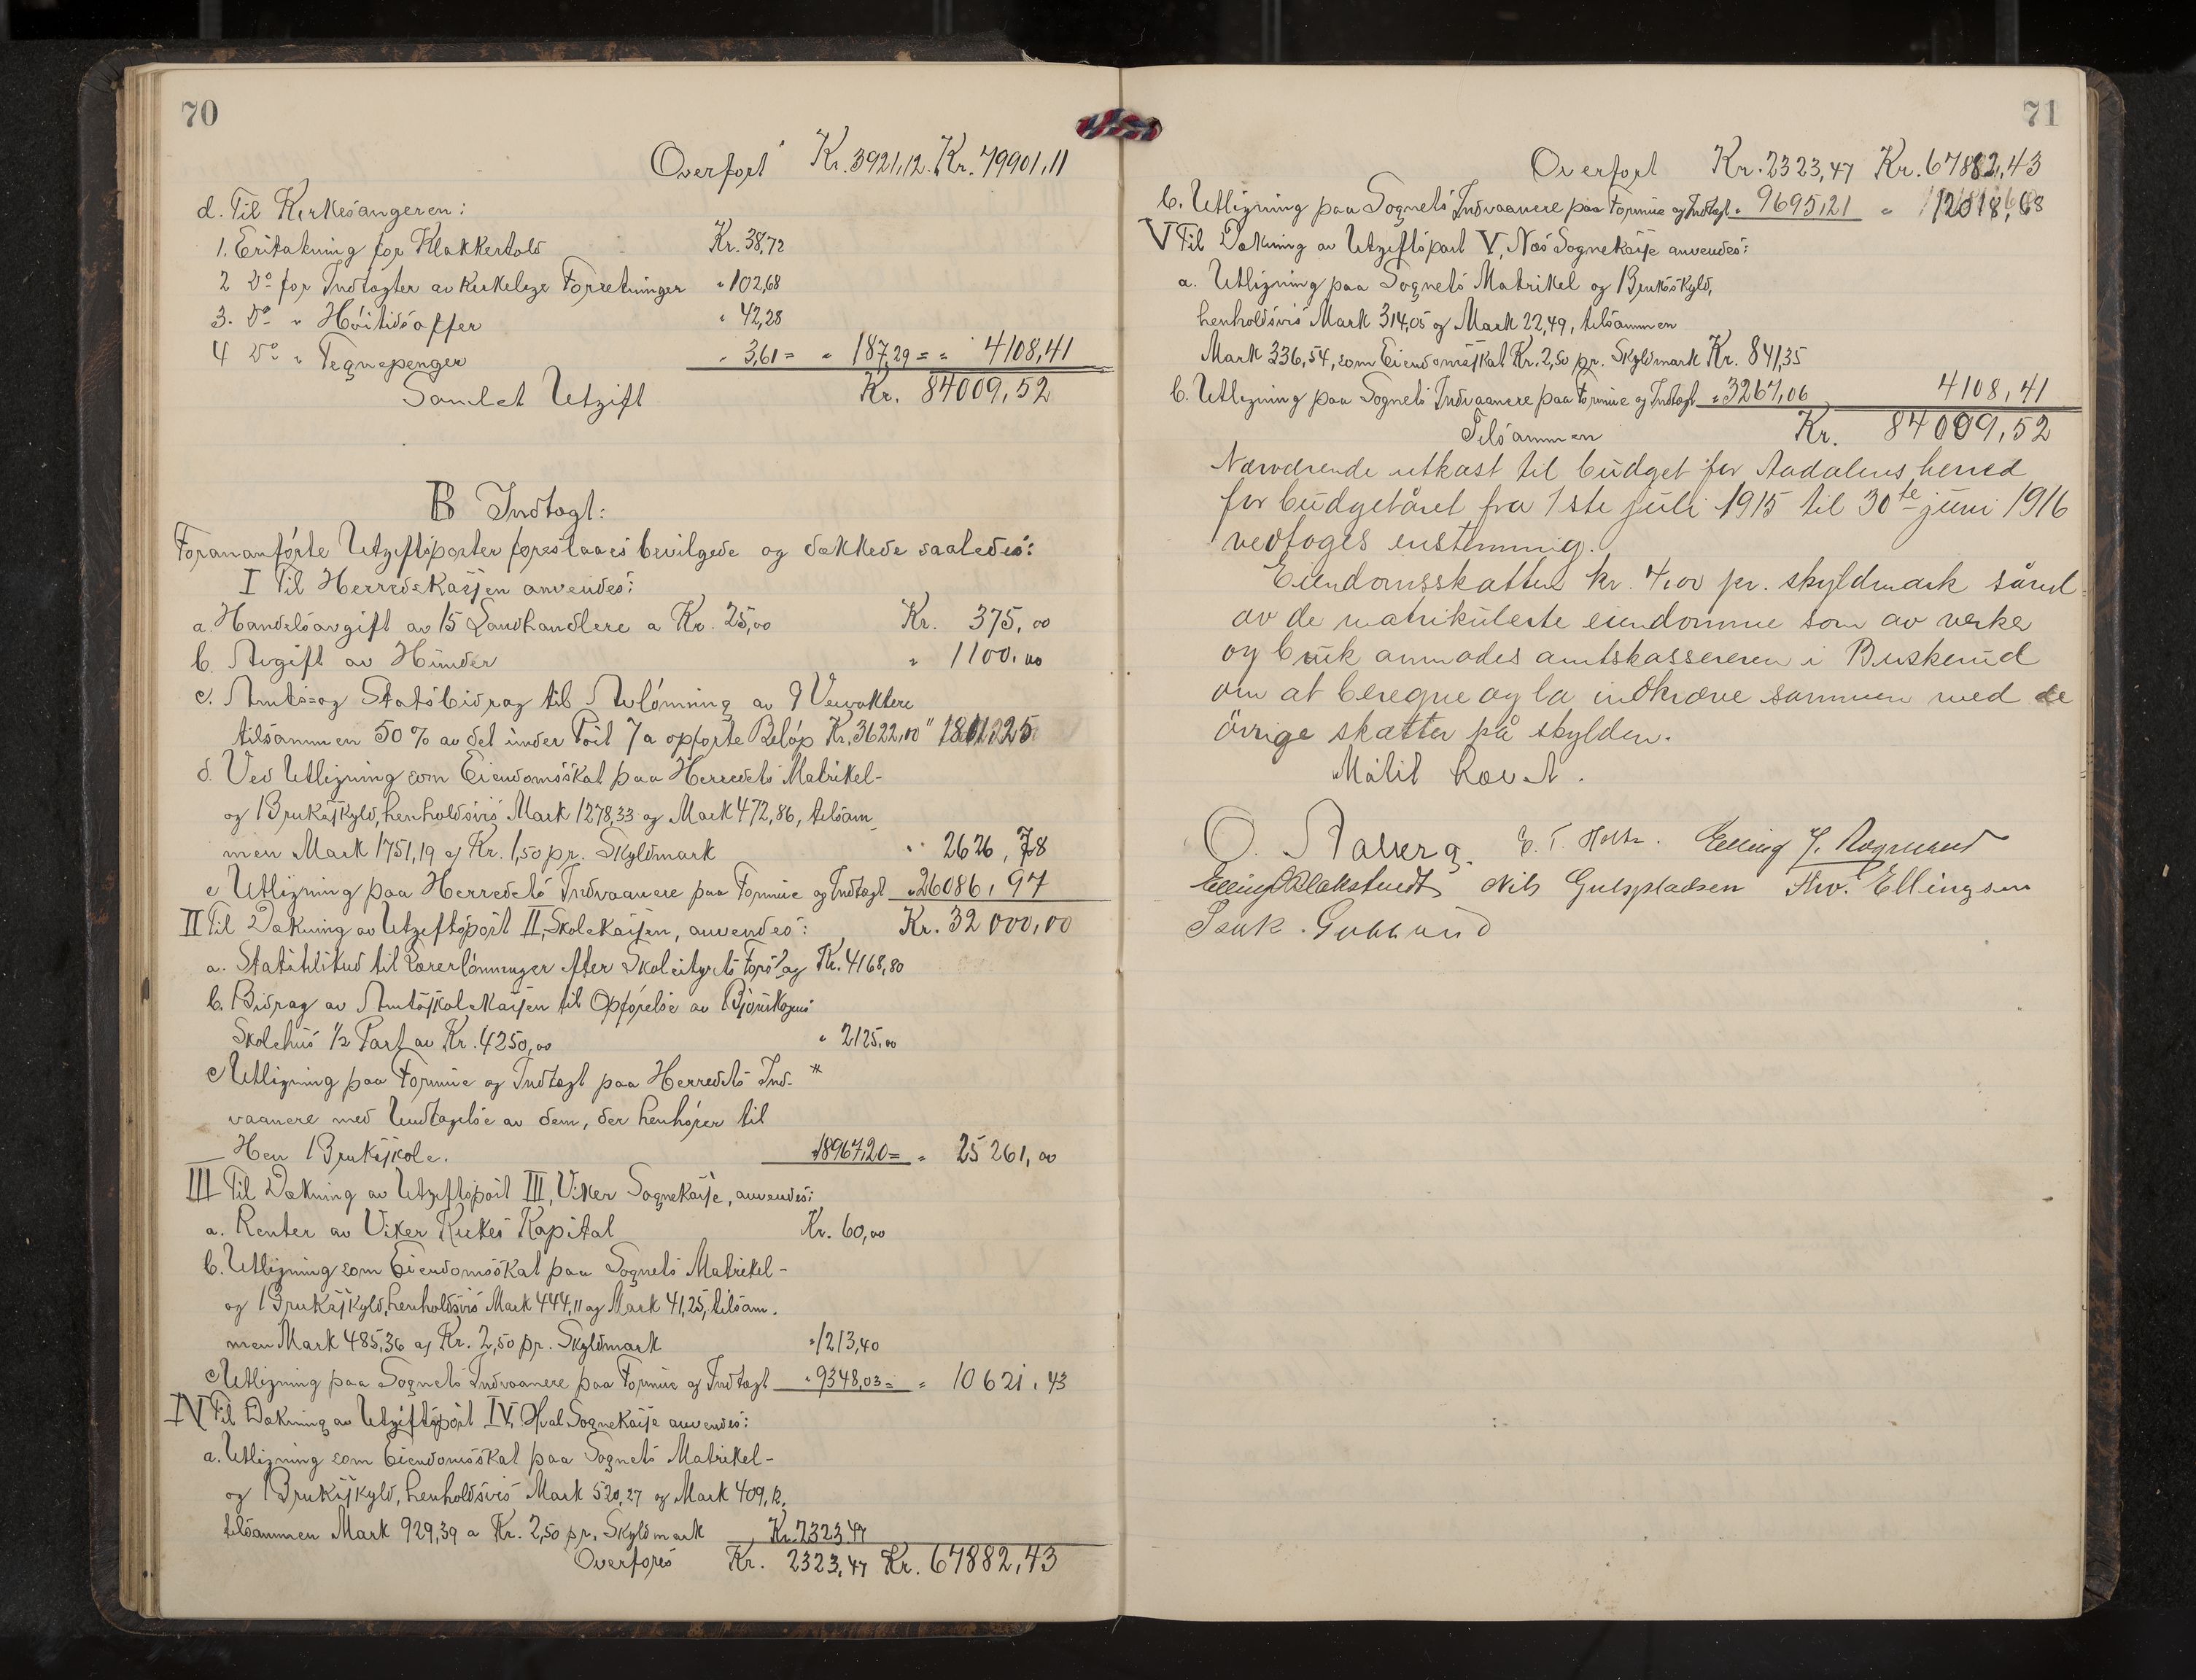 70
Overført Kr. 3921,12. Kr. 79901,11
d. Til Kirkesangeren:
1. Erstatning for Klokkertold Kr. 38,72
2 Do for Indtægter av Kirkelige Forretninger " 102,68
3. Do " Høitidsoffer " 42,28
4 Do " Tegnepenger " 3,61 = " 187,29 = " 4108,41
Samlet Utgift Kr. 84009,52
B Indtægt:
Forananførte Utgiftsposter foreslaaes bevilgede og dækkede saaledes:
I Til Herredskassen anvendes:
a. Handelsavgift av 15 Landhandlere a Kr. 25,00 Kr. 375,00
b. Avgift av Hunder " 1100,00
c. Amts= og Statsbidrag til Avlønning av 9 Veivoktere
tilsammen 50 % av det under Post 7a opførte Beløp Kr. 3622,00 " 1811,25
d. Ved Utligning som Eiendomsskat paa Herredets Matrikel-
og Bruksskyld, henholdsvis Mark 1278,33 og Mark 472,86, tilsam-
men Mark 1751,19 af Kr. 1,50 pr. Skyldmark " 2626,78
e Utligning paa Herredets Indvaanere paa Formue og Indtægt " 26086,97
II Til Dækning av Utgiftspost II, Skolekassen, anvendes: Kr. 32000,00
a. Statstilskud til Lærerlønninger efter Skolestyrets Forslag Kr. 4168,80
b. Bidrag av Amtsskolekassen til Opførelse av
Skolehus 1/2 Part av Kr. 4250,00 " 2125,00
c Utligning paa Formue og Indtægt paa Herredets Ind-
vaanere med Undtagelse av dem, der henhører til
Hen Bruksskole. 18967,20 = " 25261,00
III Til Dækning av Utgiftspost III, Viker Sognekasse, anvendes:
a. Renter av Viker Kirkes Kapital Kr. 60,00
b. Utligning som Eiendomsskat paa Sognets Matrikel-
og Bruksskyld, henholdsvis Mark 444,11 og Mark 41,25, tilsam-
men Mark 485,36 af Kr. 2,50 pr. Skyldmark " 1213,40
c Utligning paa Sognets Indvaanere paa Formue og Indtægt " 9348,03 = " 10621,43
IV Til Dækning av Utgiftspost IV, Hval Sognekasse anvendes:
a. Utligning som Eiendomsskat paa Sognets Matrikel-
og Bruksskyld, henholdsvis Mark 520,27 og Mark 409,12,
tilsammen Mark 929,39 a Kr. 2,50 pr. Skyldmark Kr. 2323,47
Overføres Kr. 2323,47 Kr. 67882,43
71
Overført Kr. 2323,47 Kr. 67882,43
b. Utligning paa Sognets Indvaanere paa Formue og Indtægt " 9695,21 " 12018,68
V Til Dækning av Utgiftspost V, Næs Sognekasse anvendes:
a. Utligning paa Sognets Matrikel og Bruksskyld,
henholdsvis Mark 314,05 og Mark 22,49, tilsammen
Mark 336,54, som Eiendomsskat Kr. 2,50 pr. Skyldmark Kr. 841,35
b. Utligning paa Sognets Indvaanere paa Formue og Indtægt " 3267,06 4108,41
Tilsammen Kr. 84009,52
Nærværende utkast til budget for Aadalens herred
for budgetåret fra 1ste juli 1915 til 30te juni 1916
vedtoges enstemmig.
Eiendomsskatten kr. 4,00 pr. skyldmark såvel
av de matrikulerte eiendomme som av verker
og bruk anmodes amtskassereren i Buskerud
om at beregne og la indkræve sammen med de
övrige skatter på skylden.
Mötit hævet.
O. Aaberg. E. T. Holte. Elling J.
Elling Blakstvedt Nils Gulsplassen Thv. Ellingsen
Isak